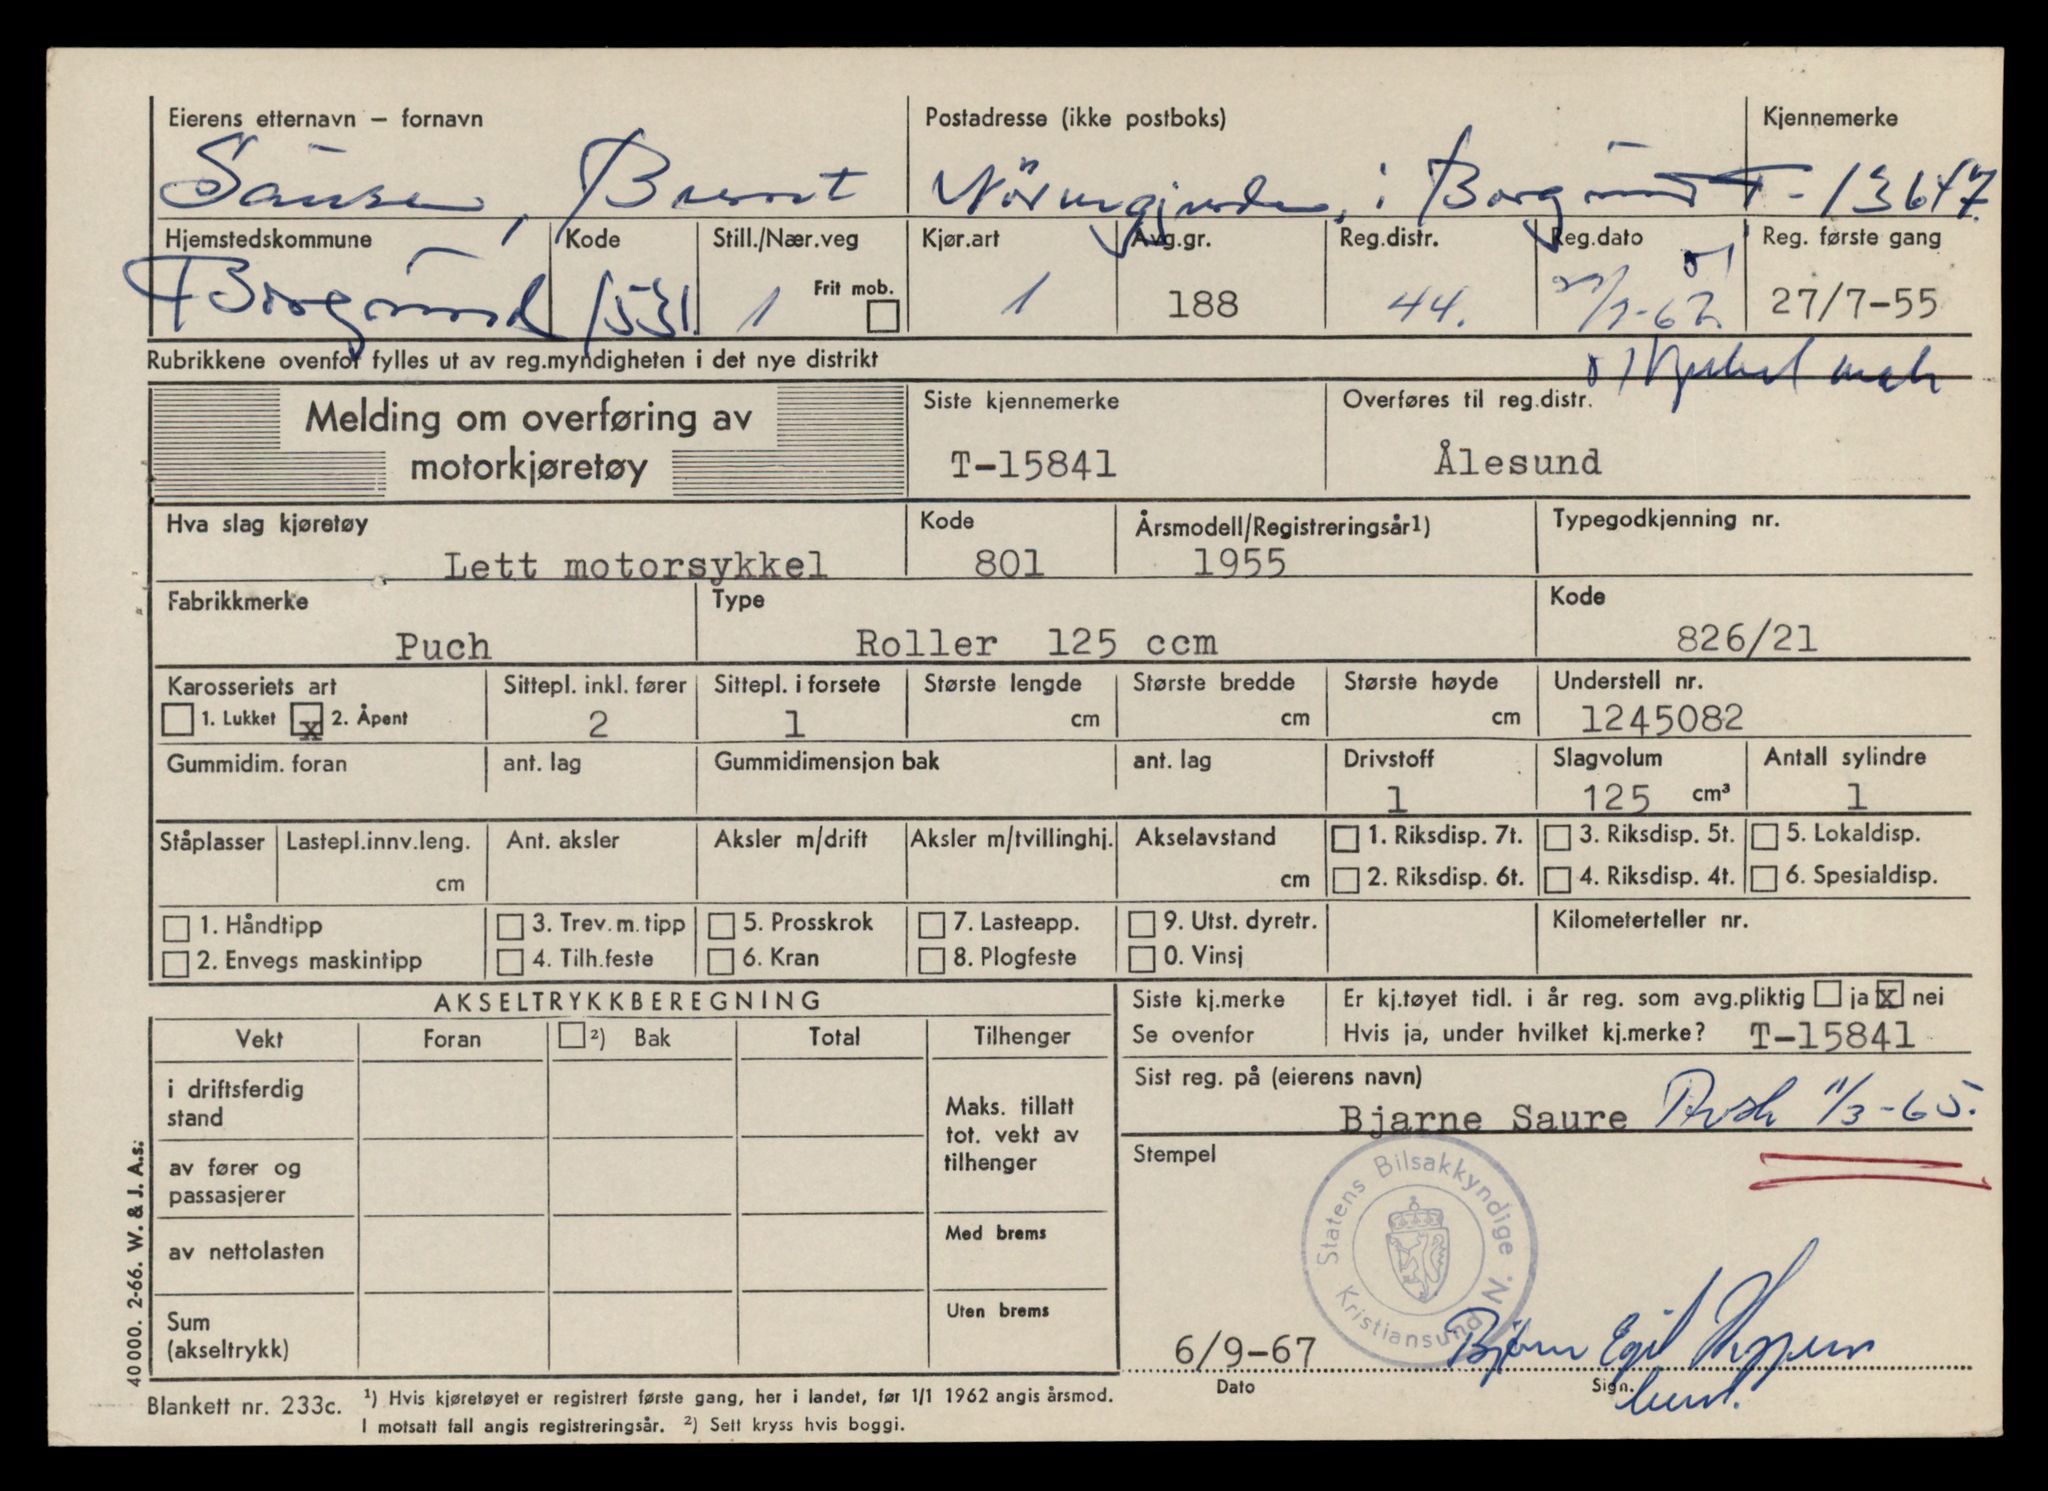 Eierens etternavn – fornavn
Postadresse (ikke postboks)
Kjennemerke
i Borgund T-13647.
Hjemstedskommune
Kode
Still./Nær.veg
Kjør.art
Avg.gr.
Reg.distr.
Reg.dato
Reg. første gang
Borgund 1531. 1
Frit mob.
1
188
44.
27/7-55
Rubrikkene ovenfor fylles ut av reg.myndigheten i det nye distrikt
Melding om overføring av
motorkjøretøy
Siste kjennemerke
T-15841
Overføres til reg.distr.
Ålesund
Hva slag kjøretøy
Lett motorsykkel
Kode
801
Årsmodell/Registreringsår1)
1955
Typegodkjenning nr.
Fabrikkmerke
Puch
Type
Roller 125 ccm
Kode
826/21
Karosseriets art
1. Lukket x 2. Åpent
Sittepl. inkl. fører
2
Sittepl. i forsete
1
Største lengde
cm
Største bredde
cm
Største høyde
cm
Understell nr.
1245082
Gummidim. foran
ant. lag
Gummidimensjon bak
ant. lag
Drivstoff
1
Slagvolum
125 cm³
Antall sylindre
1
Ståplasser
Lastepl.innv.leng.
cm
Ant. aksler
Aksler m/drift
Aksler m/tvillinghj.
Akselavstand
cm
1. Riksdisp. 7t.
2. Riksdisp. 6t.
3. Riksdisp. 5t.
4. Riksdisp. 4t.
5. Lokaldisp.
6. Spesialdisp.
1. Håndtipp
2. Envegs maskintipp
3. Trev. m. tipp
4. Tilh.feste
5. Prosskrok
6. Kran
7. Lasteapp.
8. Plogfeste
9. Utst. dyretr.
0. Vinsj
Kilometerteller nr.
AKSELTRYKKBEREGNING
Vekt
Foran
2) Bak
Total
Tilhenger
i driftsferdig
stand
av fører og
passasjerer
av nettolasten
Sum
(akseltrykk)
Maks. tillatt
tot. vekt av
tilhenger
Med brems
Uten brems
Siste kj.merke
Se ovenfor
Er kj.tøyet tidl. i år reg. som avg.pliktig ja x nei
Hvis ja, under hvilket kj.merke? T-15841
Sist reg. på (eierens navn)
Bjarne Saure
11/3-65.
Stempel
Statens Bilsakkyndige
Kristiansund N.
6/9-67
Bjørn Egil
Dato
Sign.
40 000. 2-66. W. & J. A.s.
Blankett nr. 233c.
1) Hvis kjøretøyet er registrert første gang, her i landet, før 1/1 1962 angis årsmod.
I motsatt fall angis registreringsår. 2) Sett kryss hvis boggi.